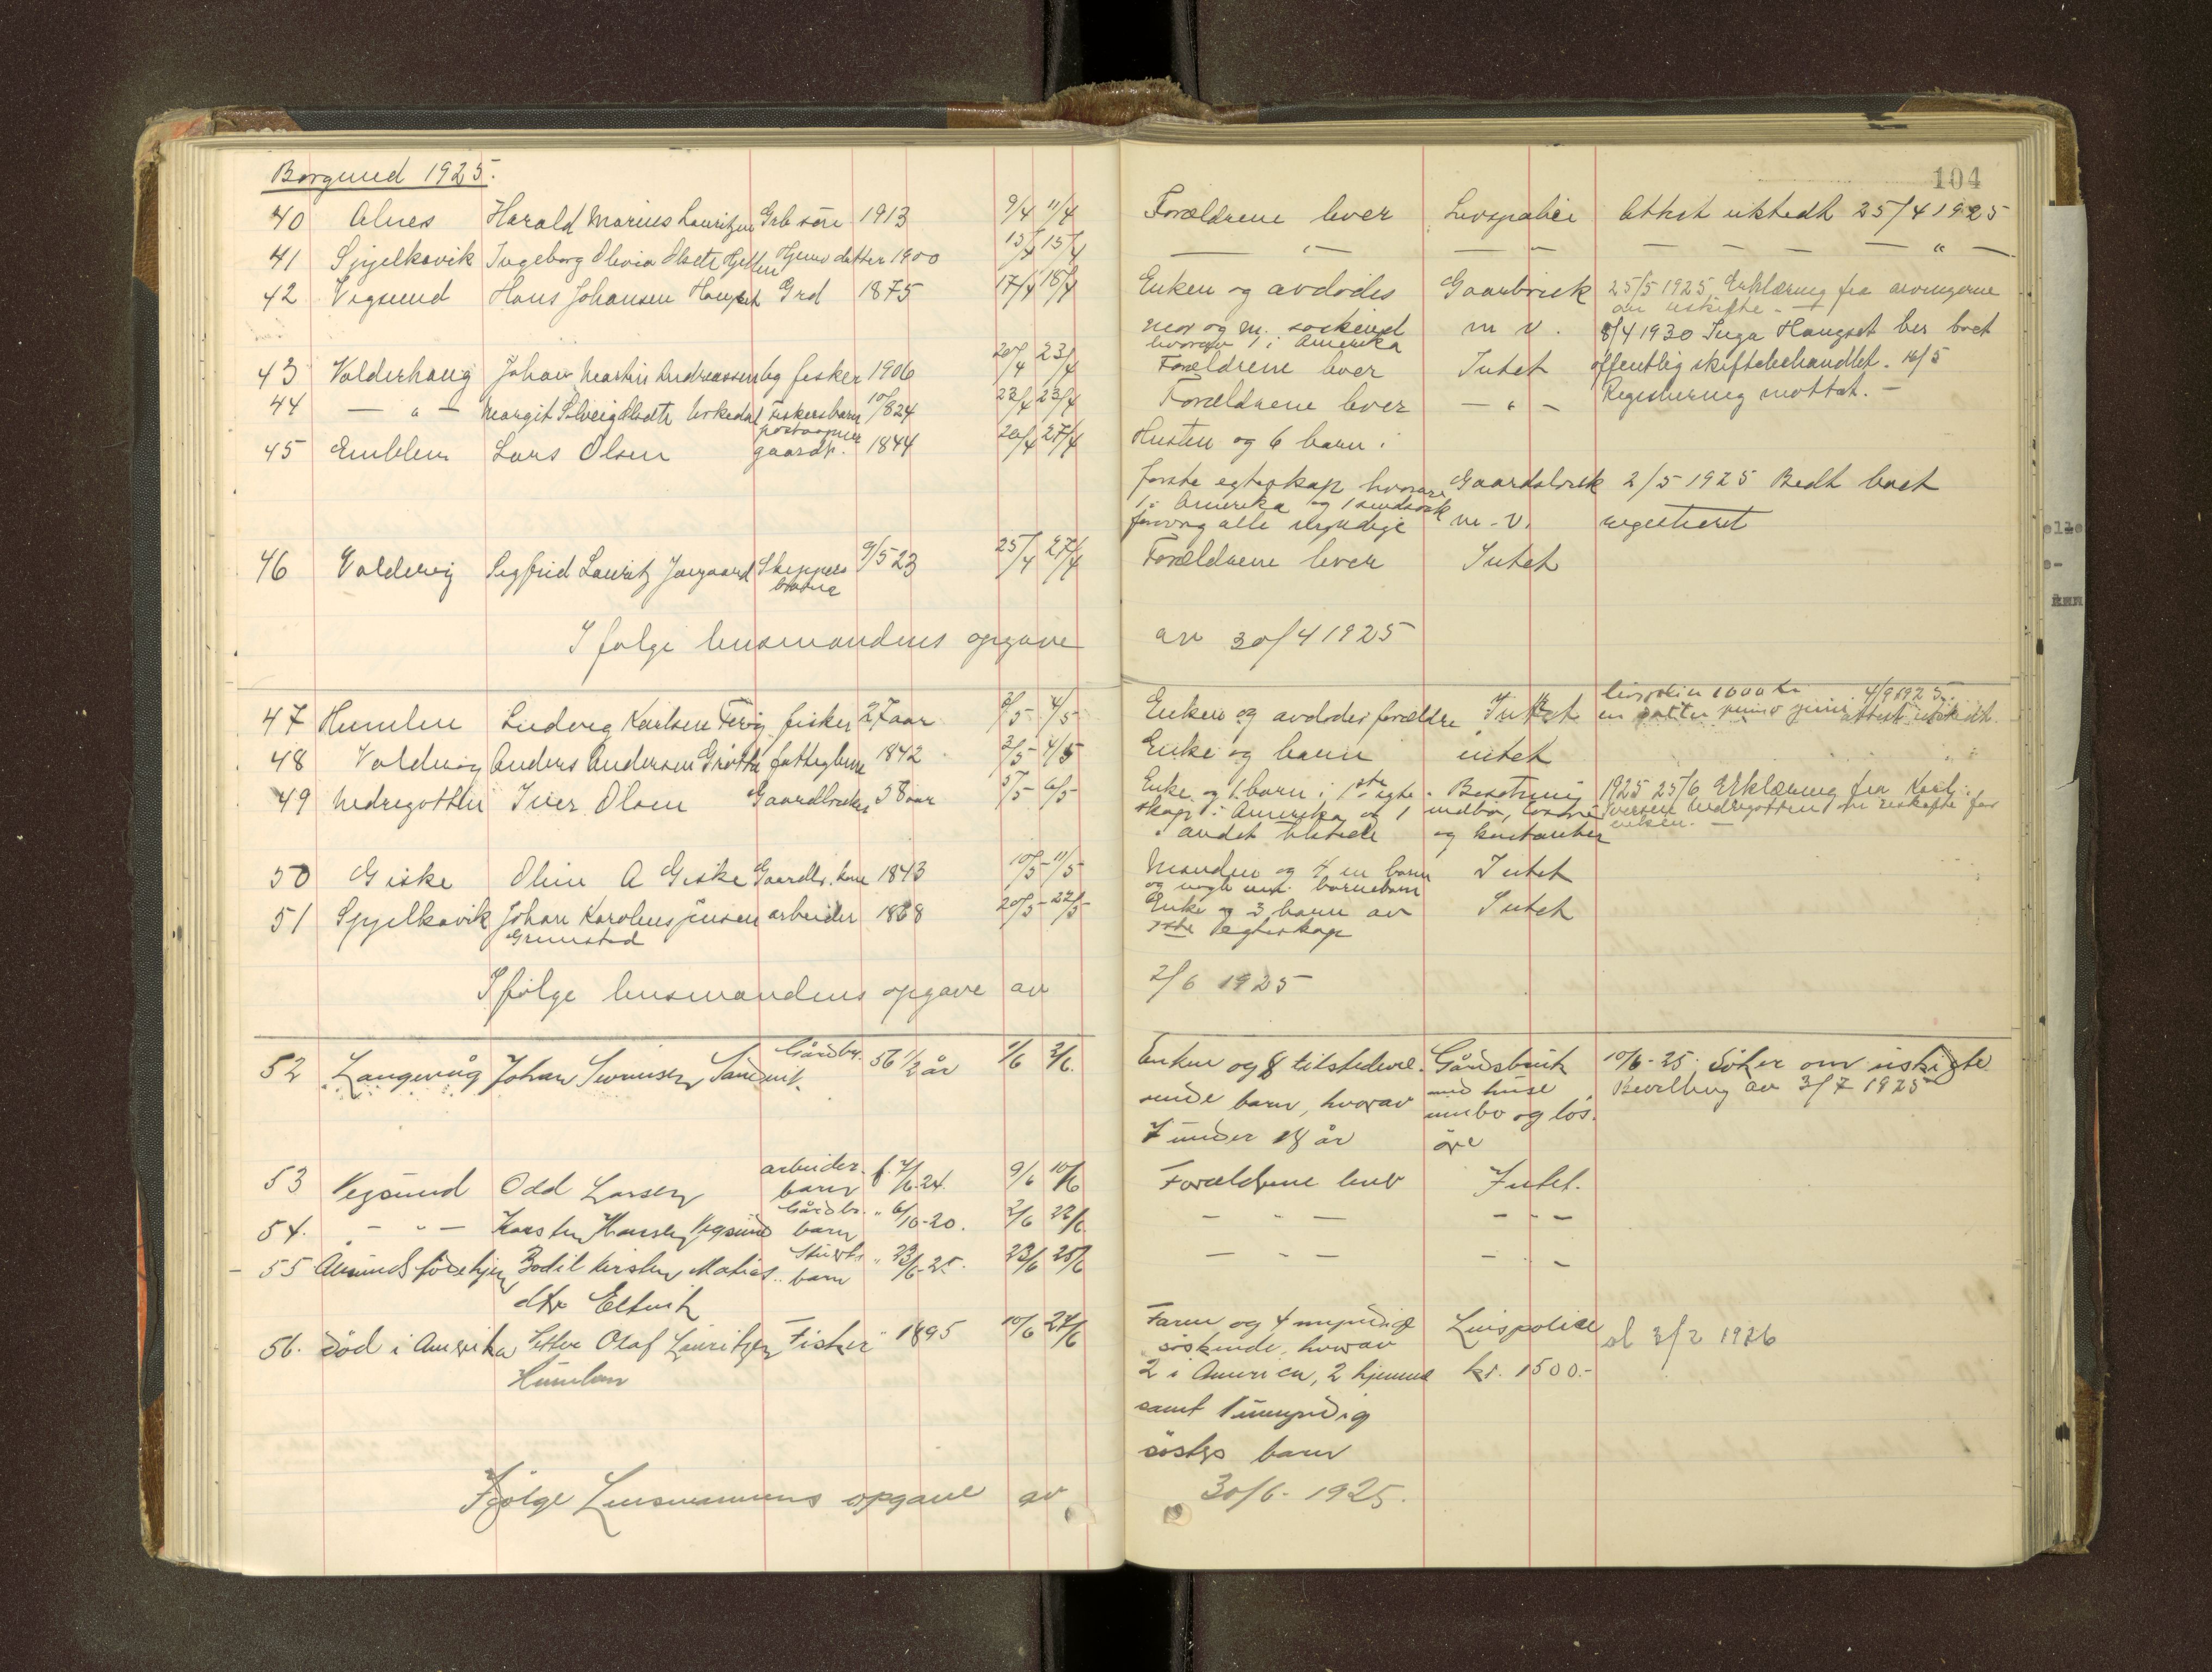 Borgund 1925.
104
40 Alnes Harald Marius Lauritzen Grb søn 1913 9/4 11/4 Forældrene lever Livspolice Attest utstedt 25/4 1925
41 Spjelkavik Ingeborg Olivia Olsdtr Hjemv datter 1900 13/4 15/4 — " — — " — — — — — " —
42 Vegsund Hans Johansen Grd 1875 17/4 18/4 Enken og avdødes Gaarbruk 25/5 1925 Erklæring fra arvingerne
om uskifte -
mor og m. søskend m v. 8/4 1930 Inga Haugset ber boet
hvorav 1 i Amerika
43 Valderhaug Johan Martin Andreassen fisker 1906 20/4 23/4 Forældrene lever Intet offentlig skiftebehandlet. 16/5
44 — " — Margit Solveig Urkedal Fiskersbarn 10/8 24 22/4 23/4 Forældrene lever — " — Registrering mottat. —
postaapner
45 Emblem Lars Olsen gaardbr. 1844 26/4 27/4 Hustru og 6 barn i
første egteskap hvorav Gaardsbruk 2/5 1925 Bedt boet
1 i Amerika og 1 sindssyk
forøvrig alle myndige m. v. registreret
46 Valdervig Sigfrid Lauritz Skippers 9/5 23 25/4 27/4 Forældrene lever Intet
barn
Ifølge lensmandens opgave av 30/4 1925
livspolice 1000 kr 4/9 1925.
47 Humlen Ludvig Karlsen fisker 27 aar 2/5 4/5 Enken og avdødes forældre Intet en attest utstedt
48 Valdervig Anders Andersen Grøtte fattiglem 1842 2/5 4/5 Enke og barn intet
49 Nedregotten Iver Olsen Gaardbruker 58 aar 5/5 6/5 Enke og 1 barn i 1ste egte- Besetning 1925 25/6 Erklæring fra
skap i Amerika og 1 indbo, løsøre Iversen Nedregotten om uskifte for
i andet tilstede og kontanter enken. —
50 Giske Oline A Giske Gaardbr. kone 1843 10/5 11/5 Manden og 4 m barn Intet
og nogle barnebarn
51 Spjelkavik Johan Karolius Jensen arbeider 1868 20/5 22/5 Enke og 3 barn av Intet
Grimstad 1ste Egteskap
Ifølge lensmandens opgave av 2/6 1925
52 Langevåg Johan Sandvik Gårdbr. 56 1/2 år 1/6 2/6. Enken og 8 tilstedevæ- Gårdsbruk 10/6-25. Søker om uskifte
rende barn, hvorav med huse Bevilling av 3/7 1925
7 under 18 år innbo og løs-
øre
53 Vegsund Odd Larsen arbeider- f. 7/6-24. 9/6 10/6 Forældrene lever Intet.
barn
54. — " — Karsten Hansen Vegsund Gårdbr. barn " 6/10-20. 2/6 22/6. — " — — " —
55 Bodil Kirsten Matias- barn " 23/6-25. 23/6 25/6 — " — — " —
dtr Eltvik
56. død i Amerika Petter Olaf Lauritzen Fisker " 1895 10/6 27/6 Faren og 4 myndige Livspolice al 3/2 1926
Humlen søskende, hvorav
2 i America, 2 hjemme kr. 1500.-
samt 1 umyndig
søsters barn
Ifølge Lensmannens opgave av 30/6-1925.
elle
e-